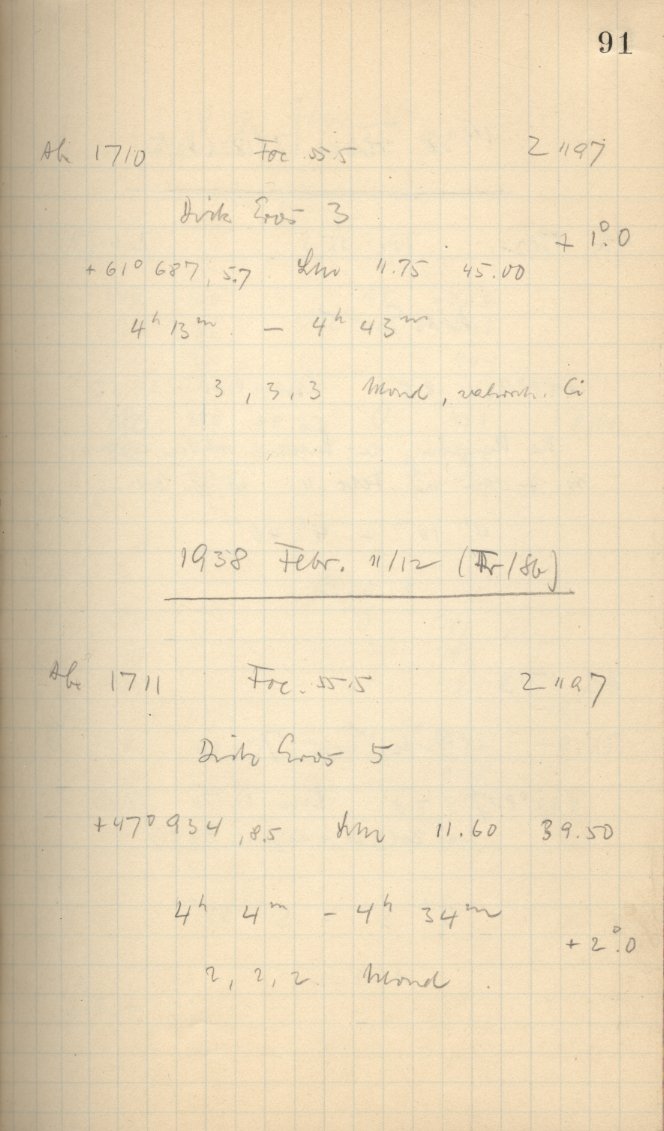 91
1710 Foc 55.5 2"97
Dirk Eros 3
+ 1°.0
+61° 687, 5.7 11.75 45.00
4h 13m – 4h 43m
3, 3, 3 Mond, wahrsch. Ci
1938 Febr. 11/12 (Fr/Sb)
1711 Foc. 55.5 2"97
Dirk Eros 5
+47° 934, 8.5 11.60 39.50
4h 4m – 4h 34m
+ 2°.0
2, 2, 2. Mond.